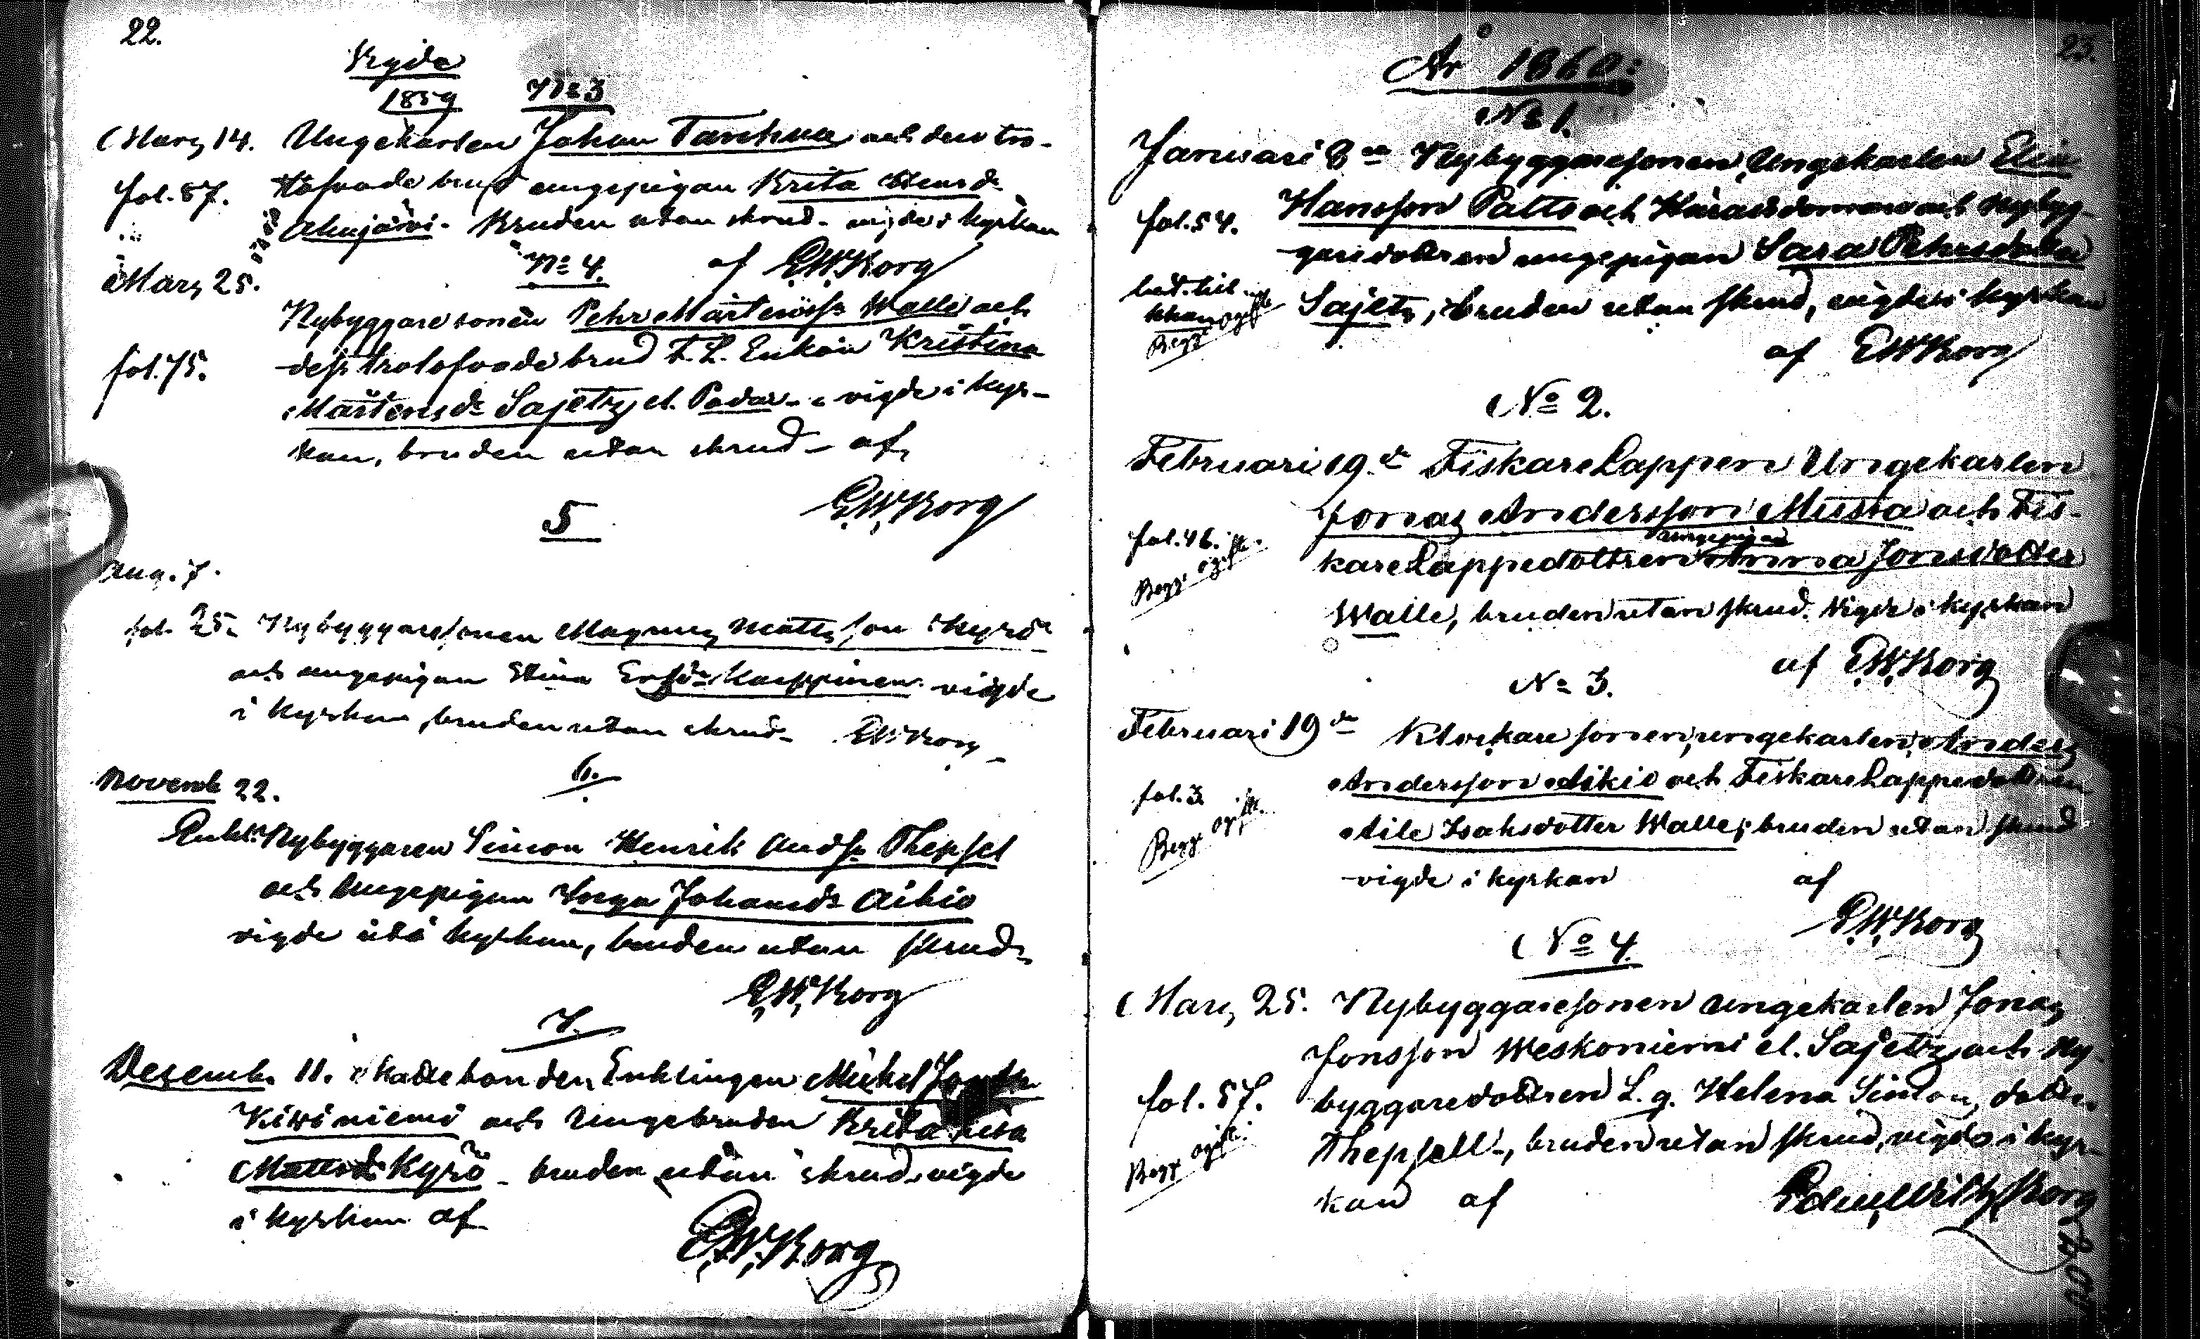 22.
Vigde
1859 No 3
Mars 14. Ungekarlen Johan och des tro-
fol. 57. låfvade brud ungepigan Brita
Akujärvi. Bruden utan skrud. vigde i kyrkan
No 4. af EWBorg
Mars 25.
Nybyggaresonen Pehr Mårtenss. Walle och
fol. 75. dess trolofvade brud F. L. Enkan Kristina
Mårtensdr Sajetz el. Padar. vigde i kyr-
kan, bruden utan skrud af
EWBorg
5
Aug. 7.
fol. 25. Nybyggaresonen Magnus Mattsson Kyrö
och ungepigan Stina vigde
i kyrkan, bruden utan skrud. EWBorg
6.
Novemb 22.
Enkl. Nybyggaren Simon Henrik Andss. Thepsel
och Ungepigan Inga Johansdr Aikio
vigde i kyrkan, bruden utan skrud.
E.W.Borg
7.
Desemb. 11. Skattebonden, Enklingen Mickel
Kiviniemi och Ungebruden Brita
Mattsdr Kyrö bruden utan skrud. vigde
i kyrkan af
E.W.Borg
23.
År 1860:
No 1.
Januari 8de Nybyggaresonen Ungekarlen Elia
fol. 54. Hansson Palto och Häradsdomare och nybyg-
garedottren ungepigan Sara Pehrsdotter
Sajetz, bruden utan skrud, vigde i kyrkan
Begge ogifte
af EWBorg
No 2.
Februari 19de FiskareLappen Ungekarlen
Jonas Andersson Musta och Fis-
fol. 46. ungepigan
kareLappedottren Anna Jonsdotter
Begge ogifte.
Walle, bruden utan skrud. Vigde i kyrkan
af E.W.Borg
No 3.
Februari 19de Klockaresonen, ungekarlen, Anders
fol. 3. Andersson Aikio och FiskareLappedottren
Begge ogifte.
Aile Isaksdotter Walle; bruden utan skrud
vigde i kyrkan af
E.W.Borg
No 4.
Mars 25. Nybyggaresonen ungekarlen Jonas
Jonsson Weskoniemi el. Sajetz och Ny-
fol. 57. byggaredottren L. g. Helena Simon, dotter
Begge ogifte.
Thepsell, bruden utan skrud, vigde i kyr-
kan af Borg